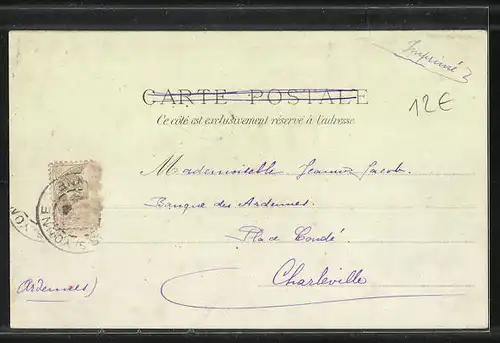 Imprimé
CARTE POSTALE
12€
Ce côté est exclusivement réservé à l'adresse
Mademoiselle Jeanne Jacob
Banque des Ardennes
Place Condé
Charleville
(Ardennes)